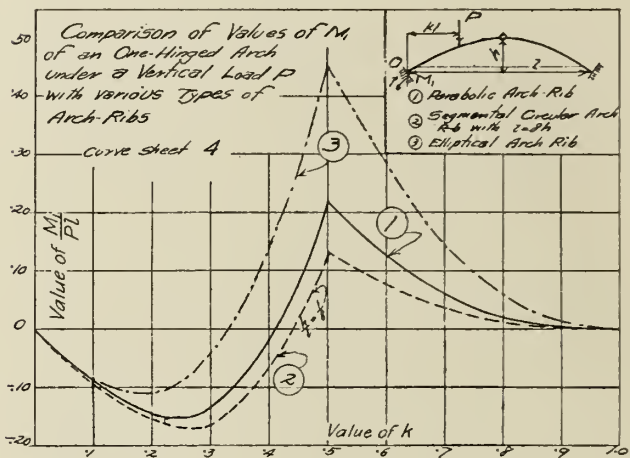 Comparison of Values of M₁
of an One-Hinged Arch
under a Vertical Load P
with various Types of
Arch-Ribs
curve sheet 4
kl
P
O
h
l
M₁
① Parabolic Arch-Rib
② Segmental Circular Arch
Rib with l=8h
③ Elliptical Arch Rib
.50
.40
.30
.20
.10
0
-.10
-.20
Value of M₁/Pl
③
①
②
Value of k
.1
.2
.3
.4
.5
.6
.7
.8
.9
1.0